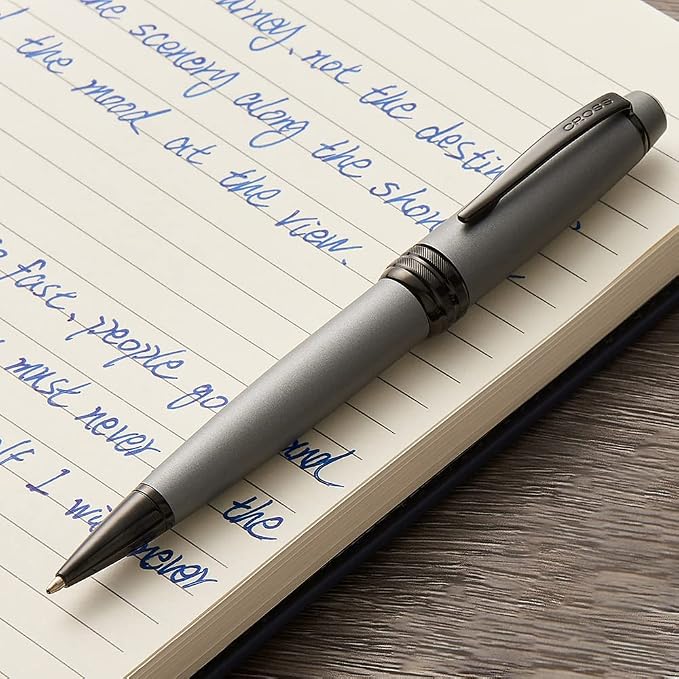 urney, not the destin
the scenery along the shor
the mood at the view.
fast, people go and
must never the
lf I wi never
CROSS